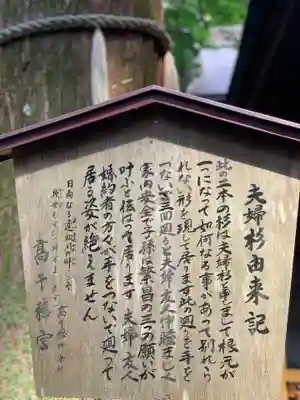 夫婦杉由来記
此の二本の杉は夫婦杉と申しまして根元が
一つになって如何なる事があっても別れら
れない形を現して居ります此の廻りを手を
つないで三回廻ると夫婦友人仲睦まじく
家内安全で子孫は繁昌の三つの願いが
叶ふと伝はって居ります 夫婦 友人
婚約者の方々が手をつないで廻って
居る姿が絶えません
高千穂宮